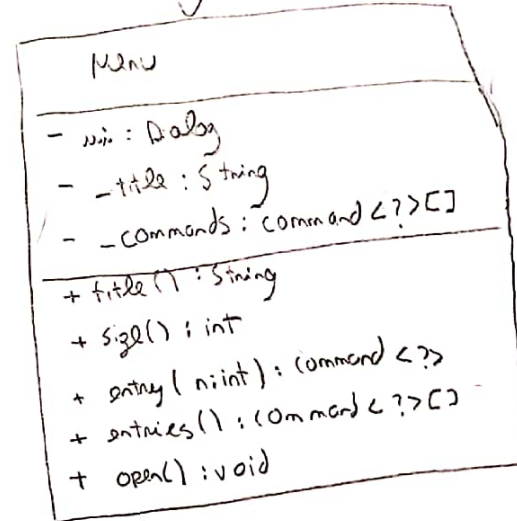 Menu
- _ui : Dialog
- _title : String
- _commands : Command <?>[]
+ title() : String
+ size() : int
+ entry(n:int) : Command <?>
+ entries() : Command <?>[]
+ open() : void